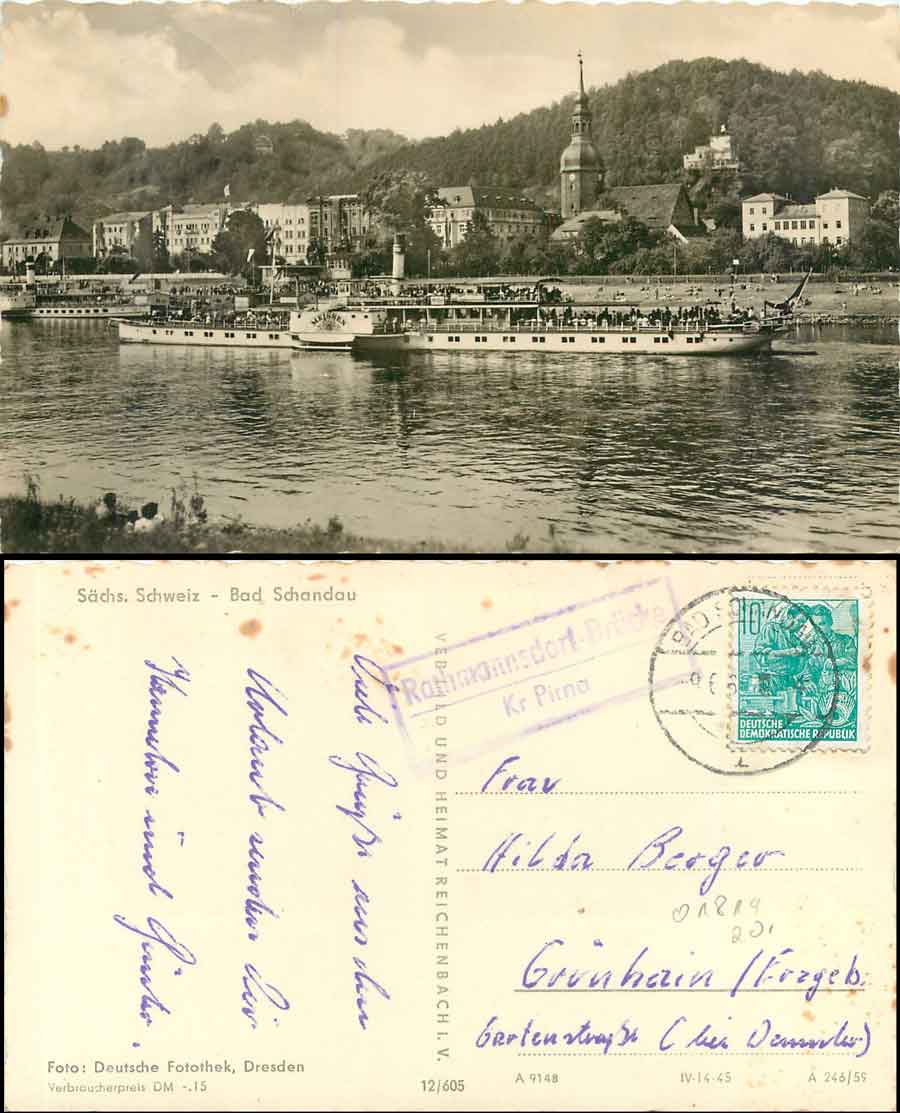 MEISSEN
Sächs. Schweiz - Bad Schandau
Viele Grüße aus dem
Urlaub senden Dir
und Günter.
VEB BILD UND HEIMAT REICHENBACH I. V.
Rathmannsdorf-Brücke
Kr Pirna
BAD SCHANDAU
10
DEUTSCHE
DEMOKRATISCHE REPUBLIK
Frau
Hilda Berger
01819
20,
Grünhain /Erzgeb.
Gartenstraße (bei
Foto: Deutsche Fotothek, Dresden
Verbraucherpreis DM -.15
12/605
A 9148
IV-14-45
A 246/59